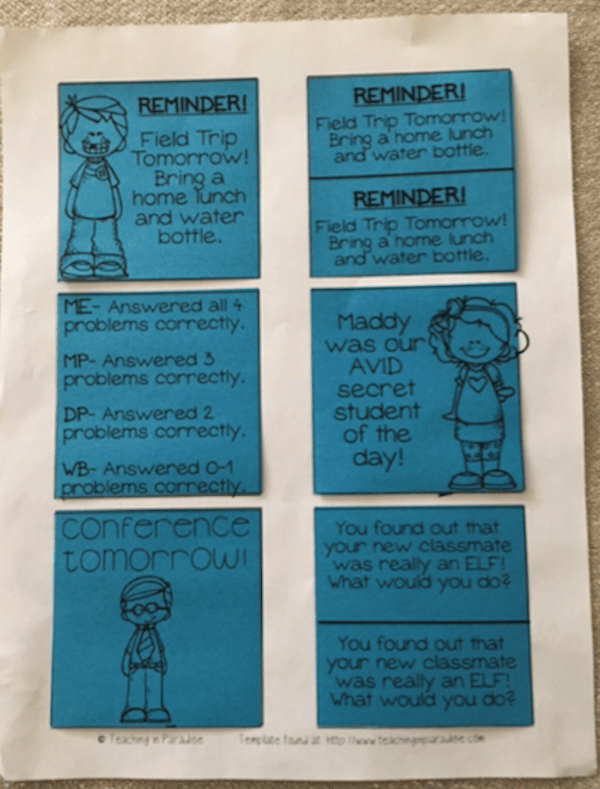 REMINDER!
Field Trip
Tomorrow!
Bring a
home lunch
and water
bottle.
REMINDER!
Field Trip Tomorrow!
Bring a home lunch
and water bottle.
REMINDER!
Field Trip Tomorrow!
Bring a home lunch
and water bottle.
ME- Answered all 4
problems correctly.
MP- Answered 3
problems correctly.
DP- Answered 2
problems correctly.
WB- Answered 0-1
problems correctly.
Maddy
was our
AVID
secret
student
of the
day!
conference
tomorrow!
You found out that
your new classmate
was really an ELF!
What would you do?
You found out that
your new classmate
was really an ELF!
What would you do?
© Teaching in Paradise
Template found at http://www.teachinginparadise.com